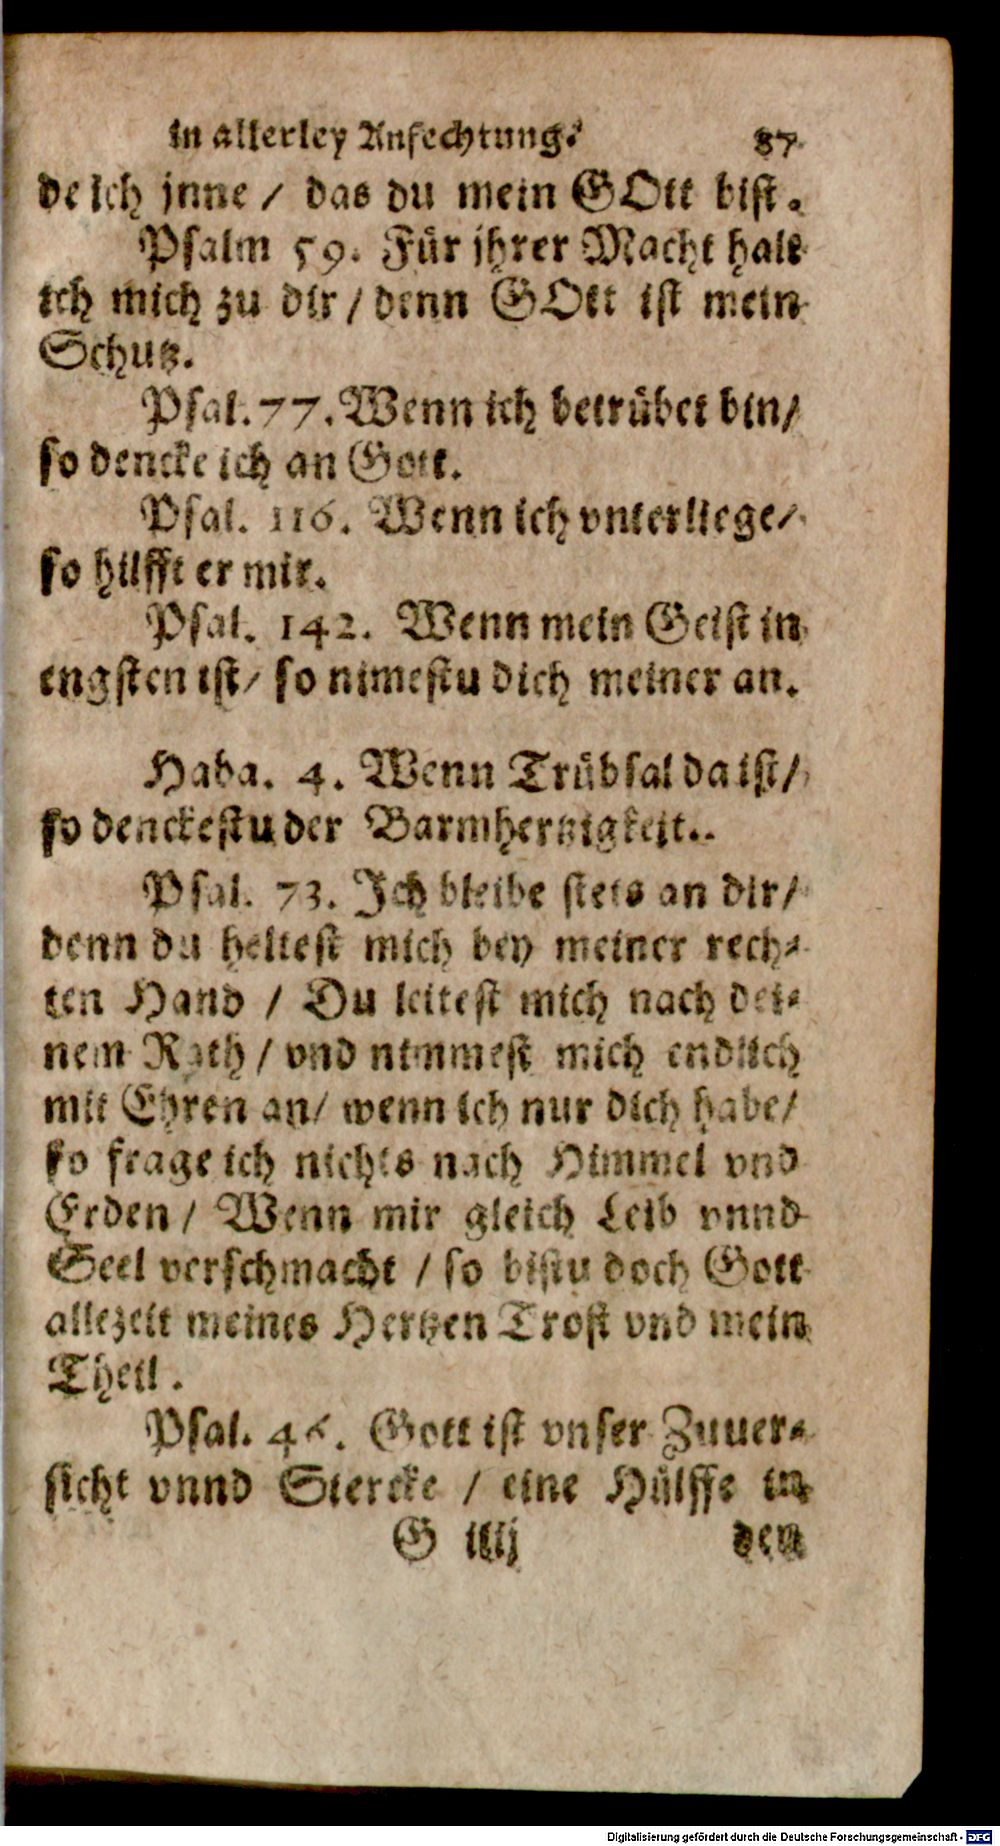 in allerley Anfechtung. 87
de ich jnne / das du mein GOtt bist.
Psalm 59. Für jhrer Macht halt
ich mich zu dir / denn GOtt ist mein
Schutz.
Psal. 77. Wenn ich betrübet bin /
so dencke ich an Gott.
Psal. 116. Wenn ich vnterliege /
so hilfft er mir.
Psal. 142. Wenn mein Geist in
engsten ist / so nimestu dich meiner an.
Haba. 4. Wenn Trübsal da ist /
so denckestu der Barmhertzigkeit..
Psal. 73. Ich bleibe stets an dir /
denn du heltest mich bey meiner rech-
ten Hand / Du leitest mich nach dei-
nem Rath / vnd nimmest mich endlich
mit Ehren an / wenn ich nur dich habe /
so frage ich nichts nach Himmel vnd
Erden / Wenn mir gleich Leib vnnd
Seel verschmacht / so bistu doch Gott
allezeit meines Hertzen Trost vnd mein
Theil.
Psal. 46. Gott ist vnser Zuuer-
sicht vnnd Stercke / eine Hülffe in
G iiij den
Digitalisierung gefördert durch die Deutsche Forschungsgemeinschaft - DFG